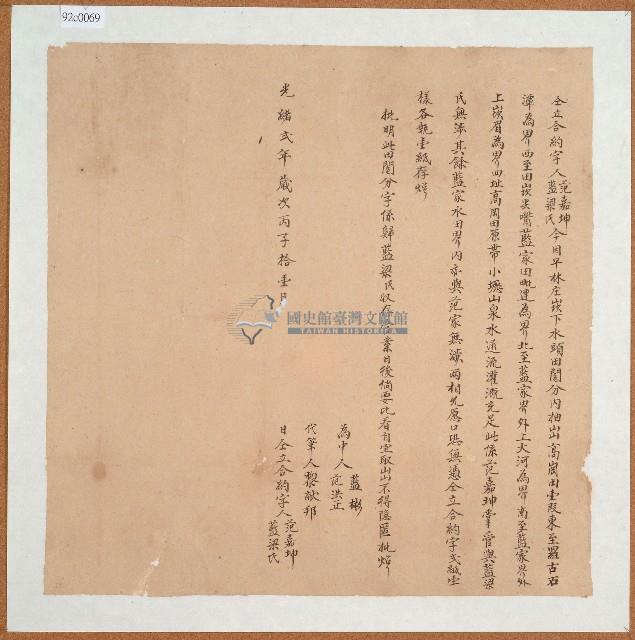 92c0069
仝立合約字人范嘉坤藍梁氏今因旱林庄崁下水頭田鬮分內抽出高崗田壹段東至羅古石
潭為界西至田崁尖嘴藍家田毗連為界北至藍家界外上大河為界南至藍家界外
上崁眉為界四址高岡田原帶小壢山泉水通流灌漑充足此係范嘉坤掌管與藍梁
氏無涉其餘藍家水田界內亦與范家無涉兩相允愿口恐無憑仝立合約字弍紙壹
樣各執壹紙存炤
批明此田鬮分字係歸藍梁氏收存 業日後倘要比看自宜取出不得隱匿批炤
為中人藍彬范洪正
代筆人黎献邦
光緒弍年歲次丙子拾壹月
日仝立合約字人范嘉坤藍梁氏
國史館臺灣文獻館
TAIWAN HISTORICA